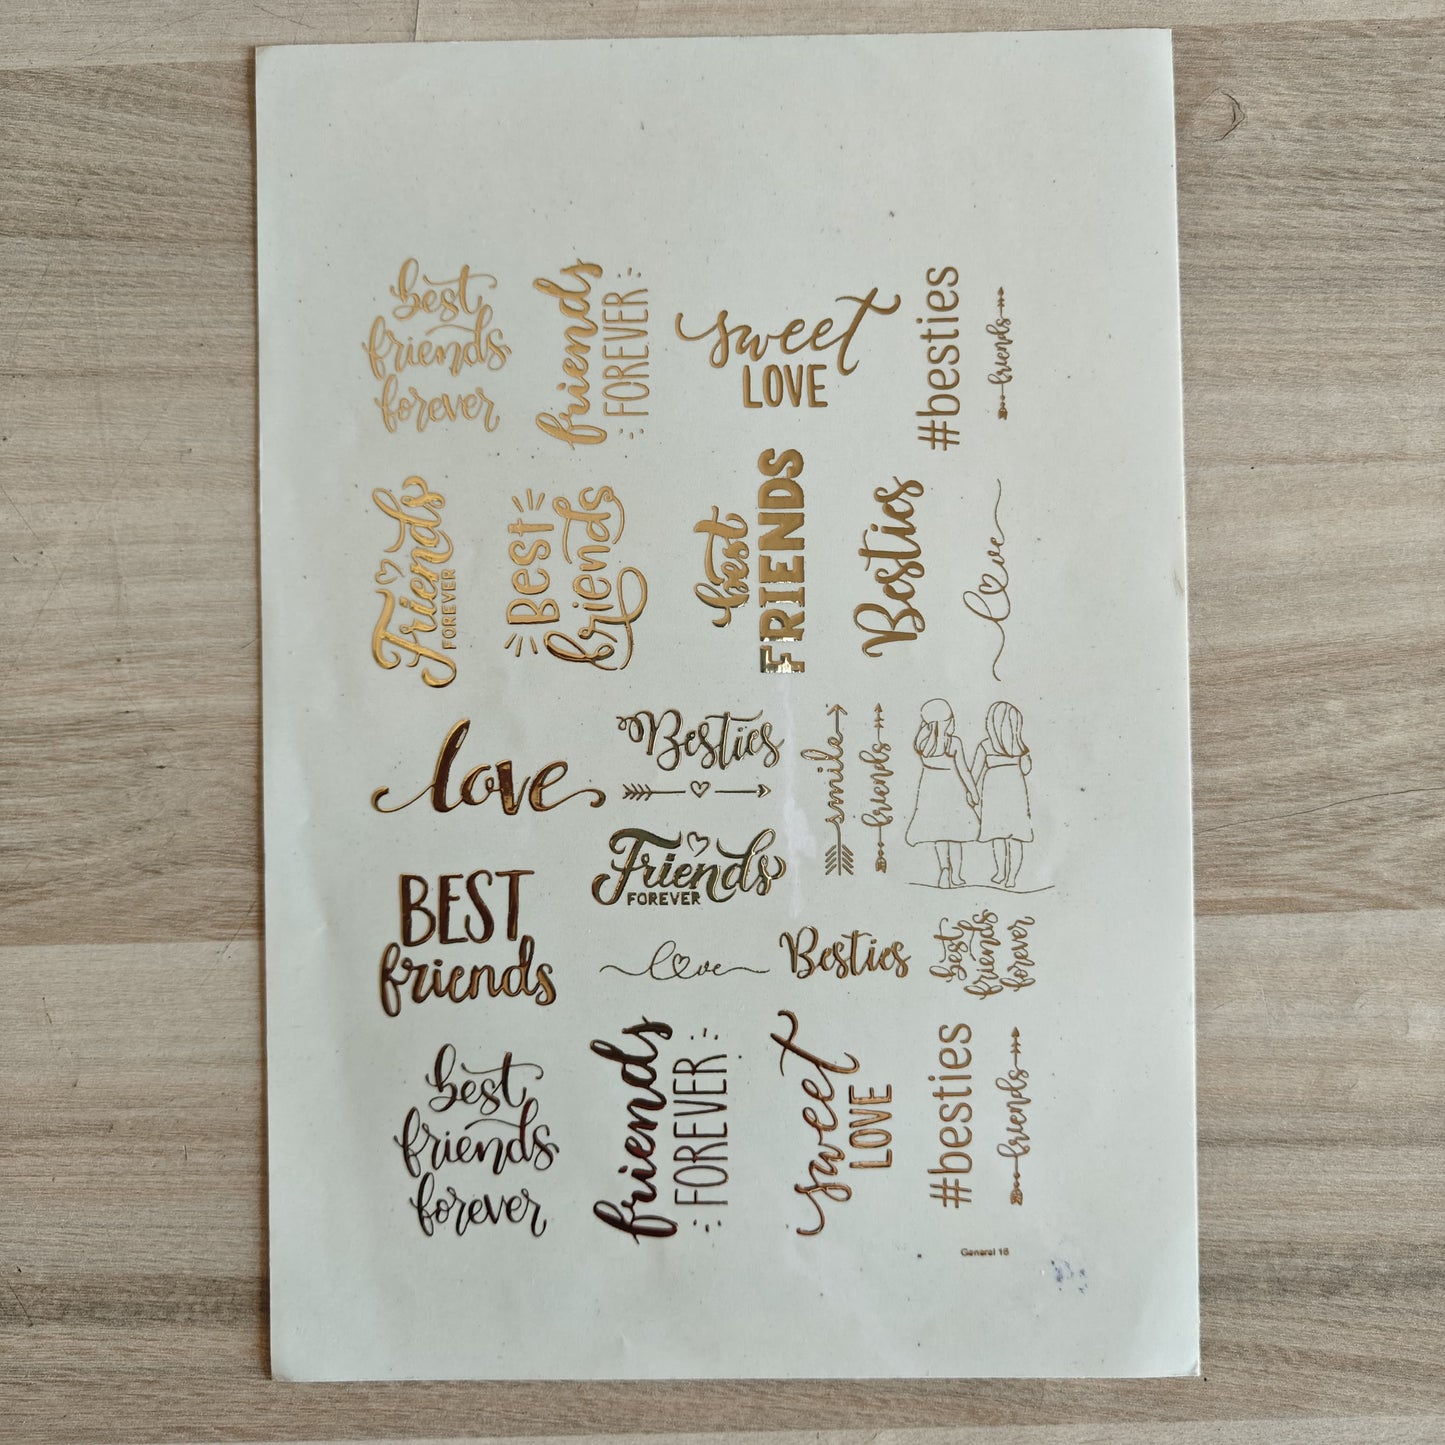 best
friends
forever
friends
FOREVER
sweet
LOVE
#besties
friends
Friends
FOREVER
Best
friends
best
FRIENDS
Besties
love
love
Besties
smile
friends
Friends
FOREVER
BEST
friends
love
Besties
best
friends
forever
best
friends
forever
friends
FOREVER
sweet
LOVE
#besties
friends
General 16